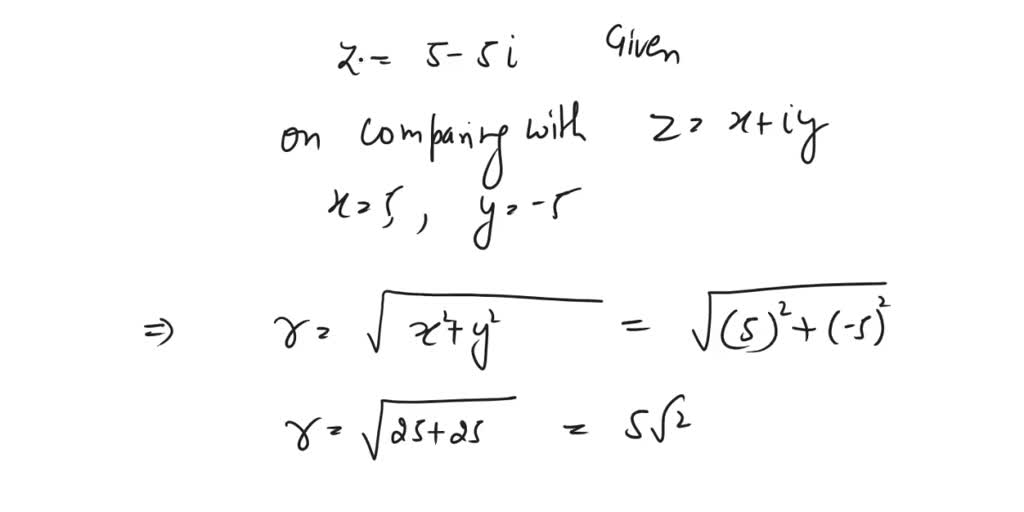 z = 5 - 5i Given
on comparing with z = x + iy
x = 5, y = -5
⇒ r = √(x² + y²) = √((5)² + (-5)²)
r = √(25 + 25) = 5√2